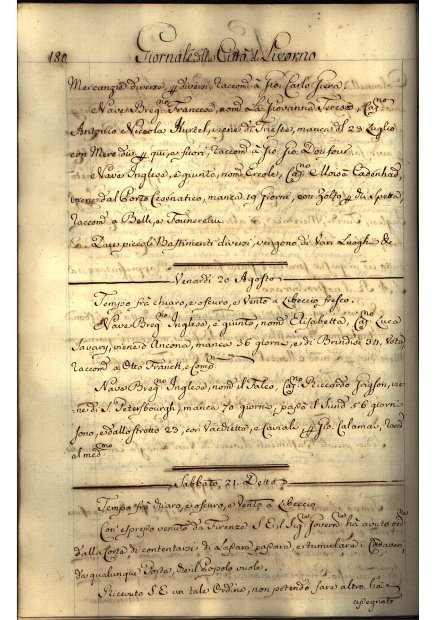 180 Giornale della Città di Livorno
Mercanzie diverse, diversi, raccom. à Gio. Carlo
Nave Breq.no Francese, nom. La Giovanna Teresa, Cap.no
Antonio e Nicola Aurel, viene di Trieste, manca dl 23 Luglio
con Merc. due qui, e fuori, raccom. à Gio. Gio. Doufour
Nave Inglese, è giunto, nom. Ercole, Cap.no Moisa
viene dal Porto Cesenatico, manca 19 Giorni, con Zolfo di Spetta,
raccom. a Belli, e
Due piccoli Bastimenti diversi, vengono di Vari Luoghi &c.
Venardi 20 Agosto
Tempo frà chiaro, e oscuro, e Vento a Libeccio fresco.
Nave Breq.no Inglese, è giunto, nom. Elisabetta, Cap.no Luca
Savary, viene d'Ancona, manca 36 giorni, e di Brindisi 34, Vota
raccom. a Otto Franck, e Comp.
Nave Breq.no Inglese, nom. il Falco, Cap.no Riccardo Grayson, vie
ne di S. Petersbourgh, manca 70 giorni, passò il Sund 56 giorni
sono, e dallo stretto 23, con Vacchette, e Caviale, Gio. Calamai, racc.
al med.mo
Sabbato, 21 Detto
Tempo frà chiaro, e oscuro, e Vento à Libeccio
Con espresso venuto da Firenze S. E. il Sig.r Govern.re hà avuto ord.
dalla Corte di contentarsi di Lasciare passare, e tutti i Cadaveri,
da qualunque Porta, che il Popolo vuole.
Ricevuto S. E. un tale Ordine, non potendo fare altro, hà
assegnato